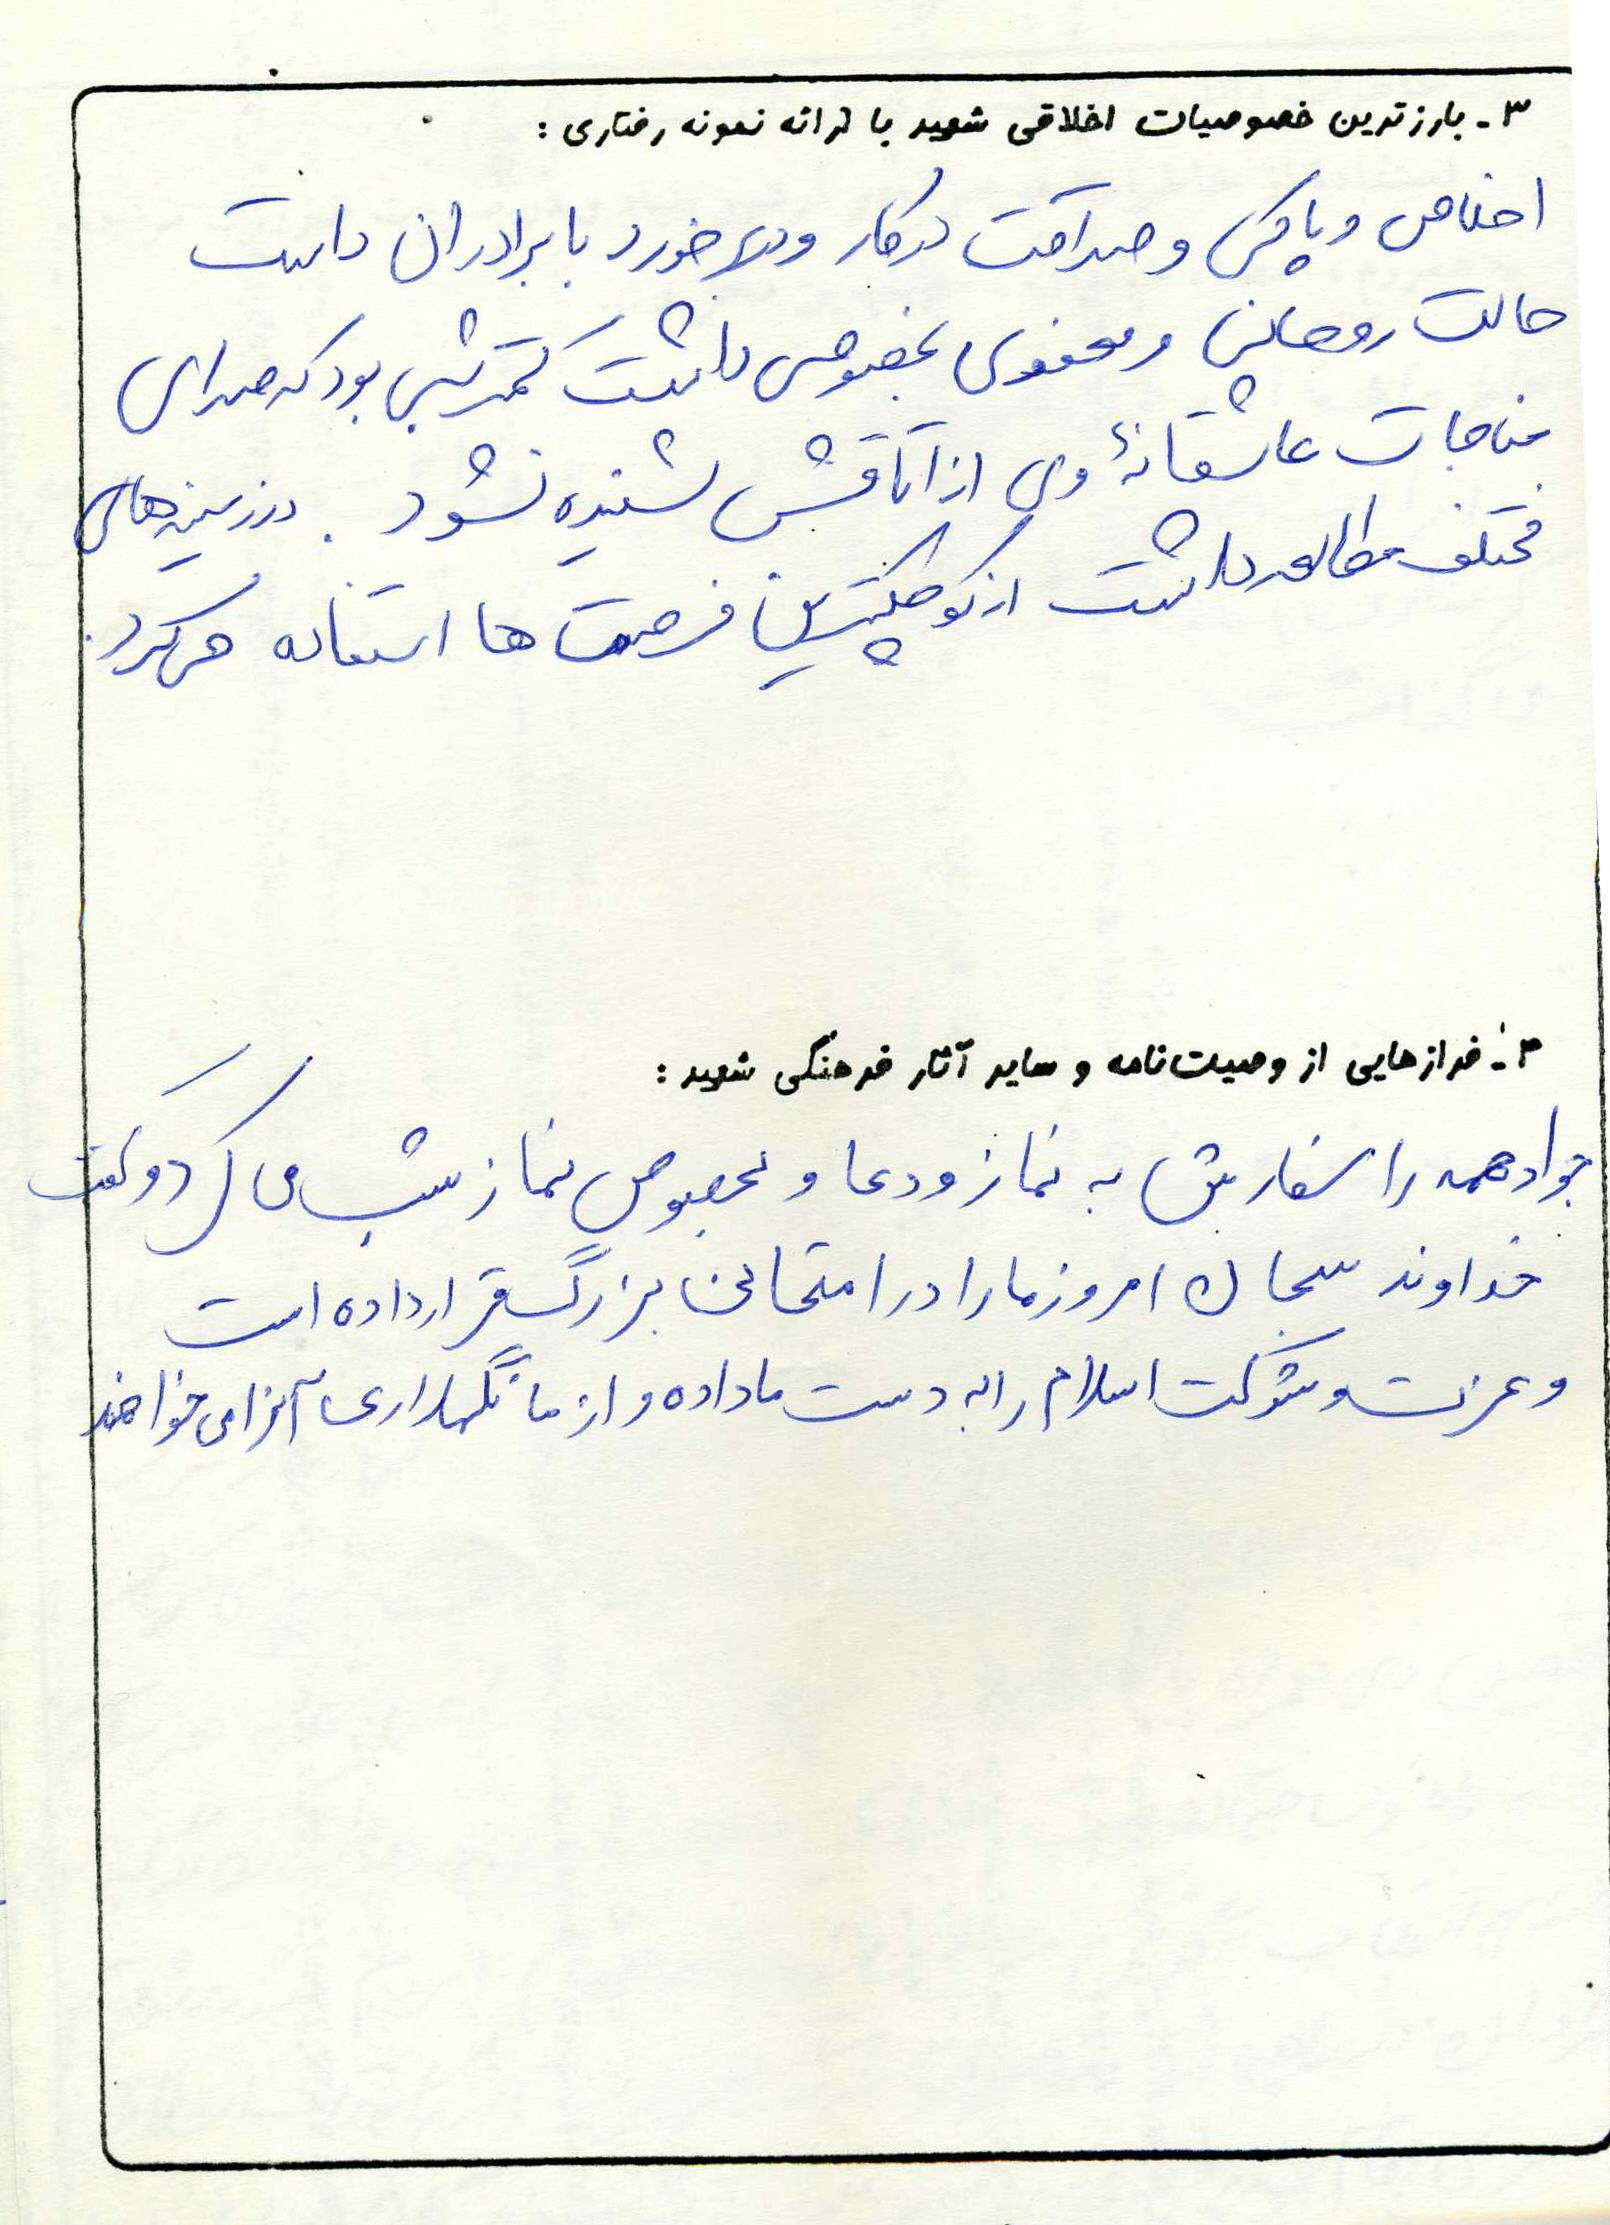 ۳- بارزترین خصوصیات اخلاقی شهید با ارائه نمونه رفتاری :
اخلاص و پاکی و صداقت در کار و برخورد با برادران داشت
حالت روحانی و معنوی بخصوصی داشت کمتر شبی بود که صدای
مناجات عاشقانهٔ وی از اتاقش شنیده نشود . در زمینه‌های
مختلف مطالعه داشت از کوچکترین فرصت ها استفاده می کرد.
۴- فرازهایی از وصیت‌نامه و سایر آثار فرهنگی شهید :
جواد همه را سفارش به نماز و دعا و بخصوص نماز شب می کرد و گفت
خداوند سبحان امروز ما را در امتحانی بزرگ قرار داده است
و عزت و شوکت اسلام را به دست ما داده و از ما نگهداری آنرا می خواهند